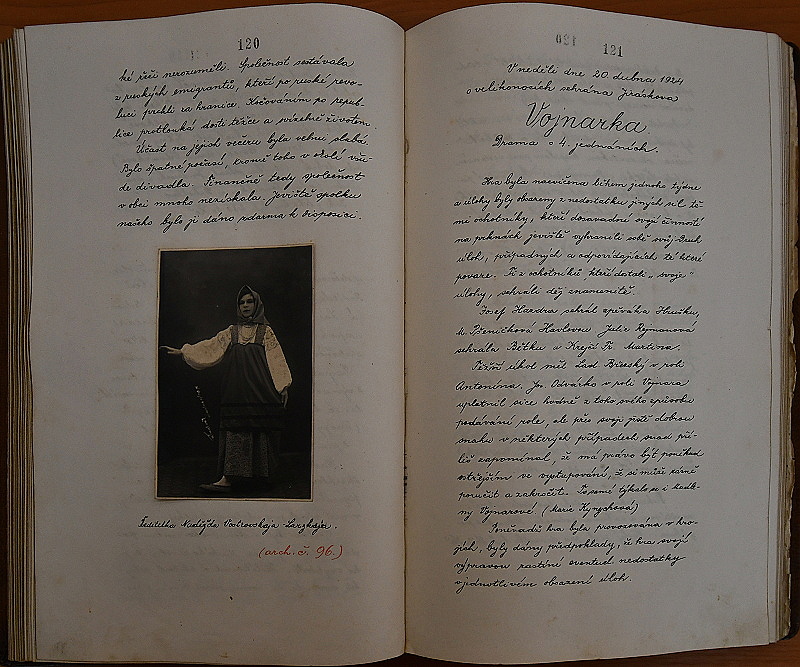 120
ké řeči nerozuměli. Společnost sestávala
z ruských emigrantů, kteří po ruské revo-
luci prchli za hranice. Kočováním po repub-
lice protlouká dosti těžce a svízelně životem.
Účast na jejich večeru byla velmi slabá.
Bylo špatné počasí, kromě toho v okolí vše-
de divadla. Finančně tedy společnost
v obci mnoho nezískala. Jeviště spolku
našeho bylo jí dáno zdarma k disposici.
Ředitelka Nadějda
(arch. č. 96.)
121
V neděli dne 20. dubna 1924
o velikonocích sehrána Jiráskova
Vojnarka
Drama o 4. jednáních.
Hra byla nacvičena během jednoho týdne
a úlohy byly obsazeny z nedostatku jiných sil tě-
mi ochotníky, kteří dosavadní svojí činností
na prknách jeviště vyhranili sobě svůj druh
úloh, případných a odpovídajících té které
povaze. Ti z ochotníků, kteří dostali "svoje"
úlohy, sehráli děj znamenitě.
Josef Hazdra sehrál zpěváka Hrušku,
M. Pšeničková Havlovou, Julie Rejmanová
sehrála Bětku a Krejčí Fr. Martina.
Těžší úkol měl Lad. Březský v roli
Antonína. Jos. Odvárko v roli Vojnara
uplatnil sice hodně z toho svého způsobu
podávání role, ale přes svoji jistě dobrou
snahu v některých případech snad pří-
liš zapomínal, že má právo být poněkud
ostřejším ve vystupování, že si může rázně
poručit a zakročit. To samé týkalo se i
Vojnarové. (Marie Hynychová)
Poněvadž hra byla provozována v kro-
jích, byly dány předpoklady, že hra svojí
výpravou zastíní eventuel. nedostatky
v jednotlivém obsazení úloh.